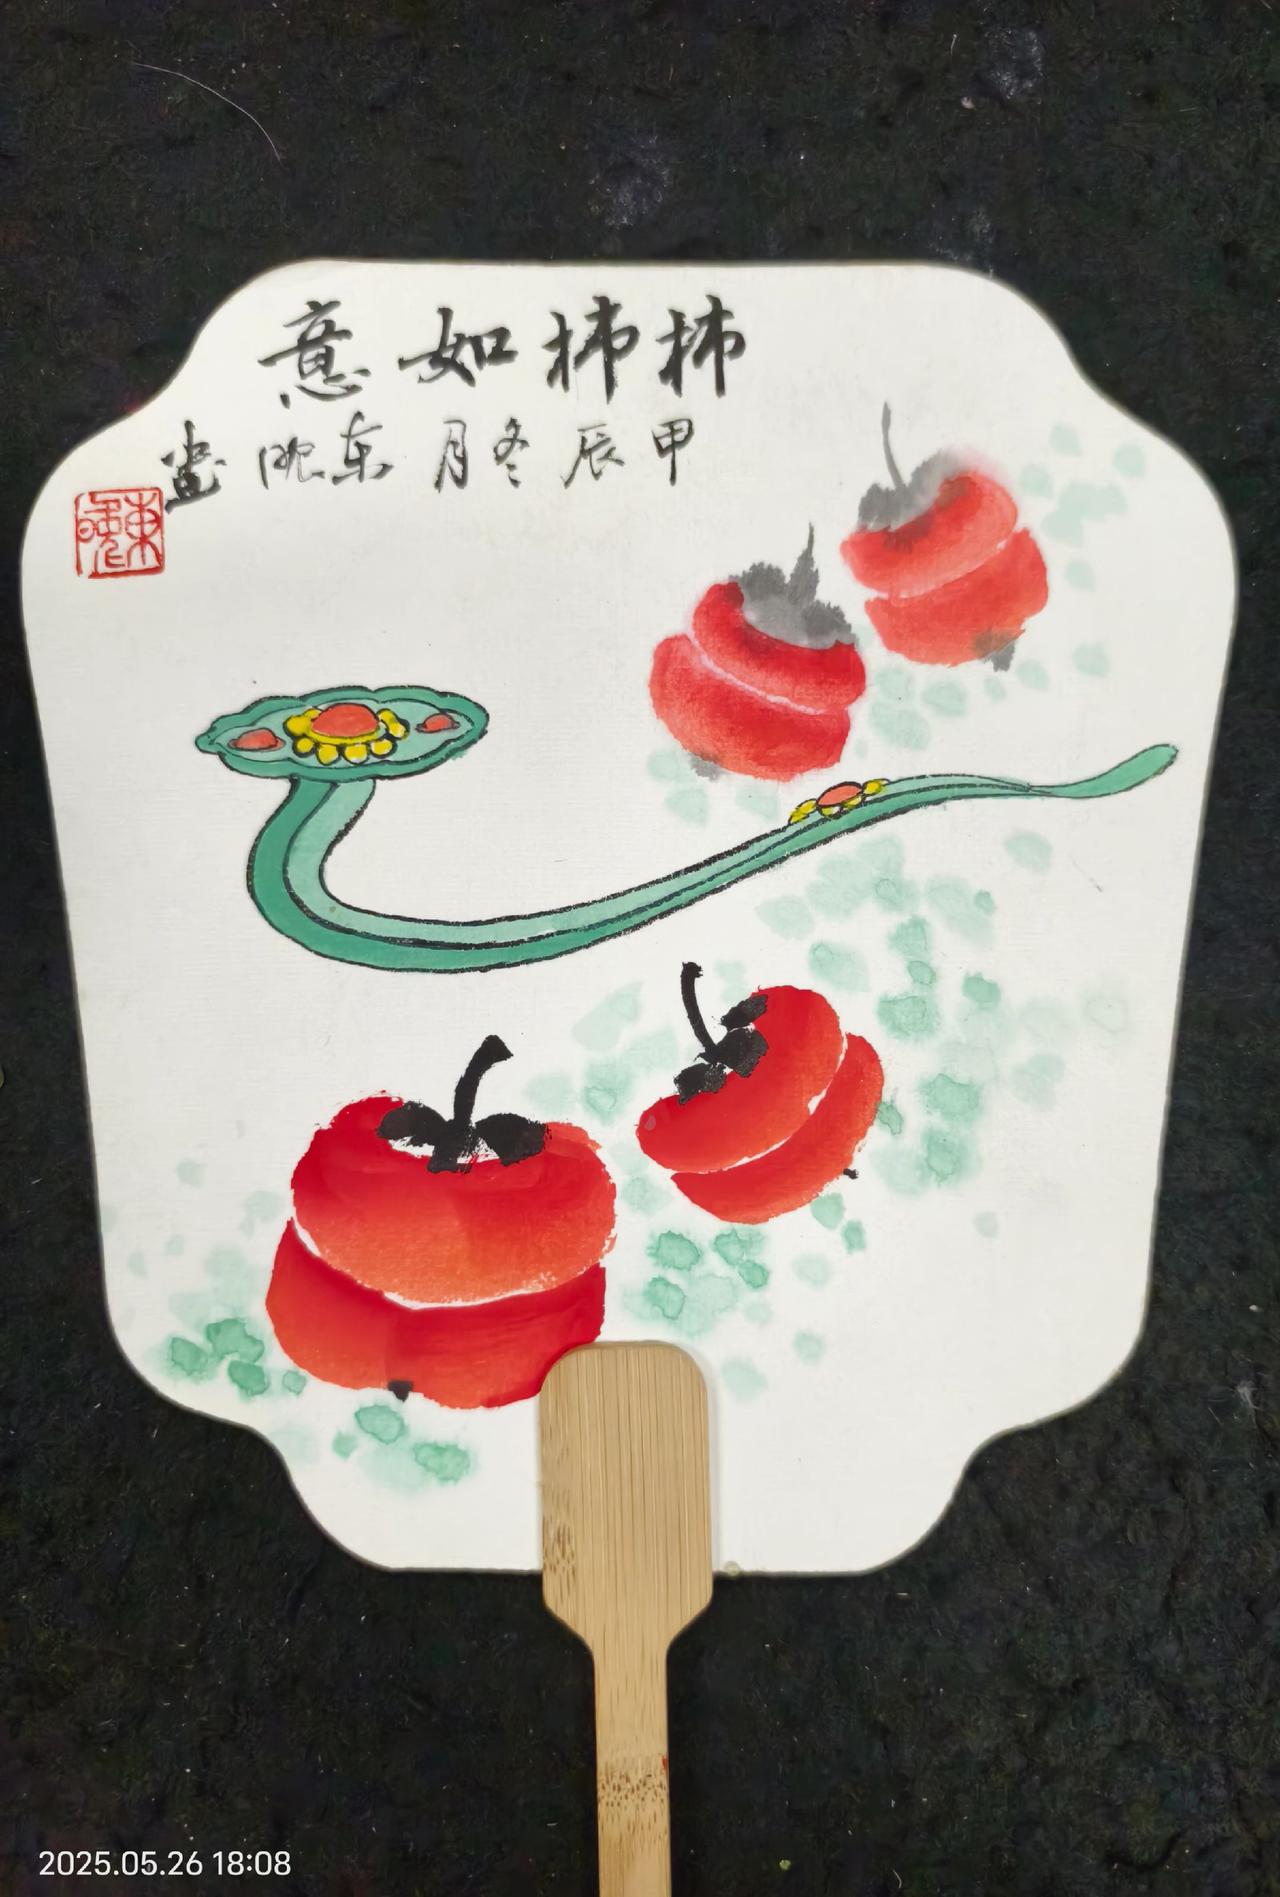 柿柿如意
甲辰冬月东晚画
東晚
2025.05.26 18:08